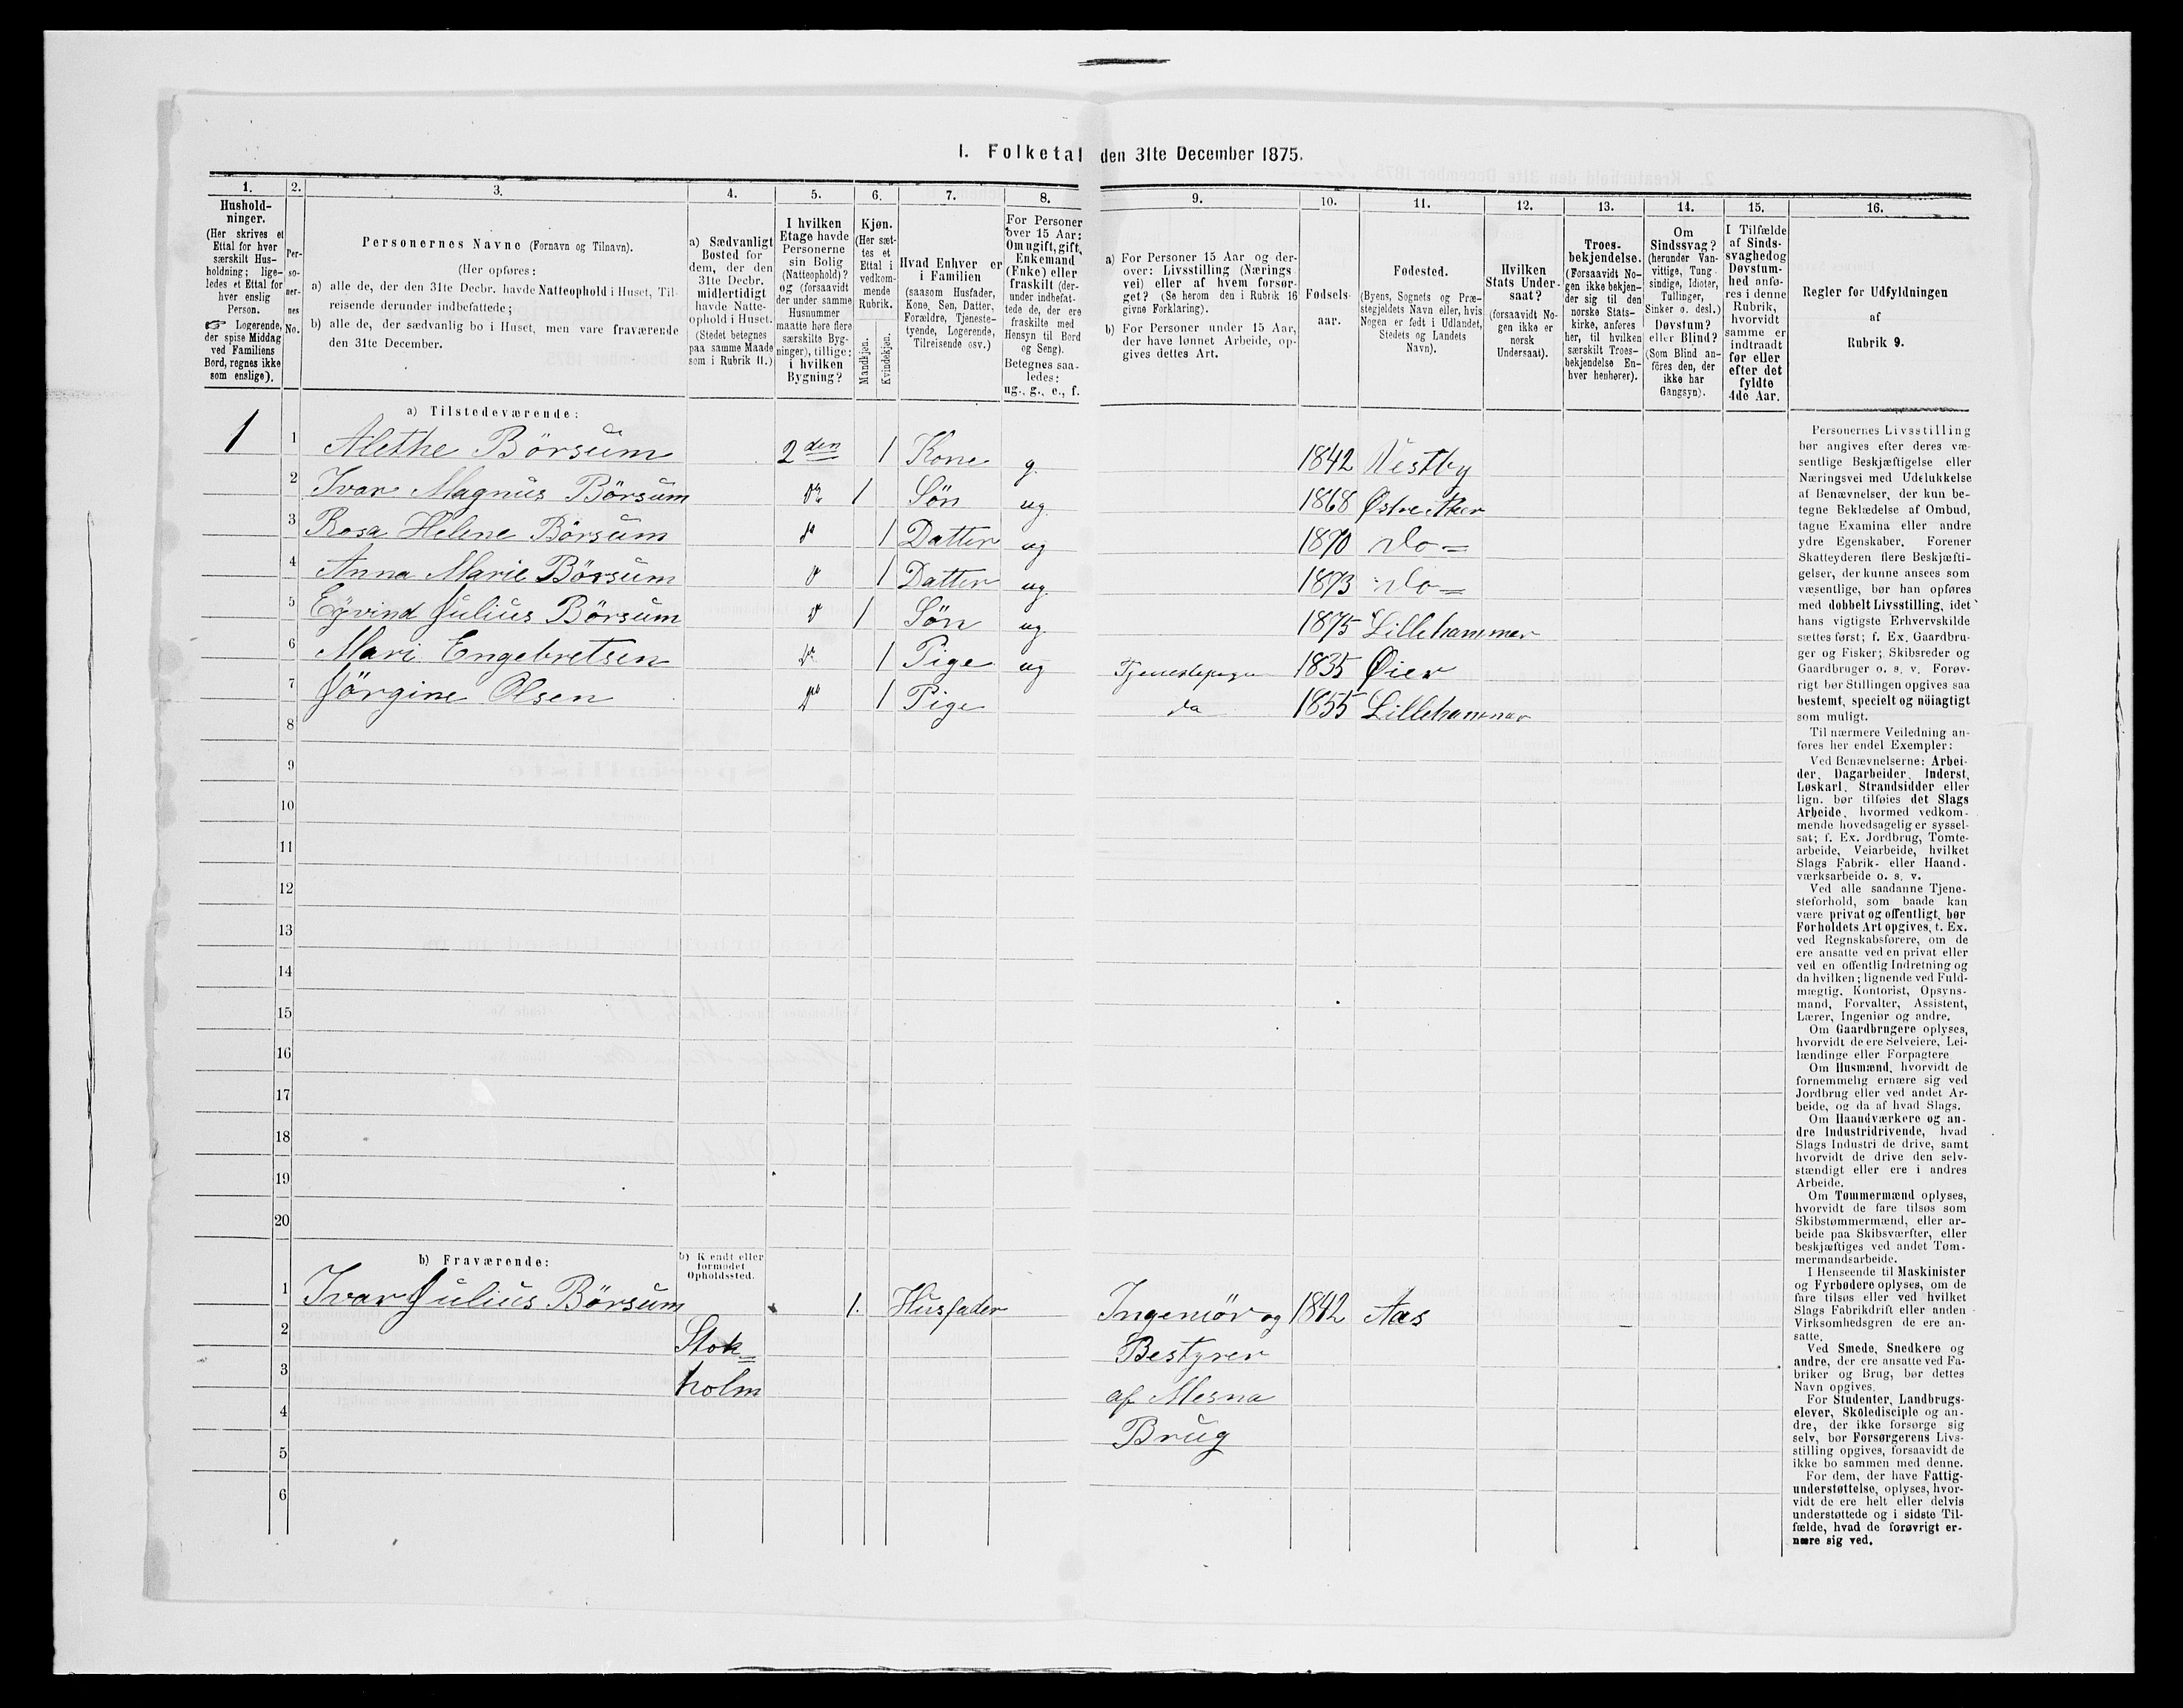 1. Folketal den 31te December 1875.
1.
Hushold-
ninger.
(Her skrives et
Ettal for hver
særskilt Hus-
holdning; lige-
ledes et Ettal for
hver enslig
Person.
☞ Logerende,
der spise Middag
ved Familiens
Bord, regnes ikke
som enslige).
2.
Per-
so-
ner-
nes
No.
3.
Personernes Navne (Fornavn og Tilnavn).
(Her opføres:
a) alle de, der den 31te Decbr. havde Natteophold i Huset, Til-
reisende derunder indbefattede;
b) alle de, der sædvanlig bo i Huset, men vare fraværende
den 31te December.
4.
a) Sædvanligt
Bosted for
dem, der den
31te Decbr.
midlertidigt
havde Natte-
ophold i Huset.
(Stedet betegnes
paa samme Maade
som i Rubrik 11.)
5.
I hvilken
Etage havde
Personerne
sin Bolig
(Natteophold)?
og (forsaavidt
der under samme
Husnummer
maatte høre flere
særskilte Byg-
ninger), tillige:
i hvilken
Bygning?
6.
Kjøn.
(Her sæt-
tes et
Ettal i
vedkom-
mende
Rubrik.
Mandkjøn.
Kvindekjøn.
7.
Hvad Enhver er
i Familien
(saasom Husfader,
Kone, Søn, Datter,
Forældre, Tjeneste-
tyende, Logerende,
Tilreisende osv.)
8.
For Personer
over 15 Aar:
Om ugift, gift,
Enkemand
(Enke) eller
fraskilt (der-
under indbefat-
tede de, der ere
fraskilte med
Hensyn til Bord
og Seng).
Betegnes saa-
ledes:
ug., g., e., f.
9.
a) For Personer 15 Aar og der-
over: Livsstilling (Nærings
vei) eller af hvem forsør-
get? (Se herom den i Rubrik 16
givne Forklaring).
b) For Personer under 15 Aar,
der have lønnet Arbeide, op-
gives dettes Art.
10.
Fødsels-
aar.
11.
Fødested.
(Byens, Sognets og Præ-
stegjeldets Navn eller, hvis
Nogen er født i Udlandet,
Stedets og Landets
Navn).
12.
Hvilken
Stats Under-
saat?
(forsaavidt No-
gen ikke er
norsk
Undersaat).
13.
Troes-
bekjendelse.
(Forsaavidt No-
gen ikke bekjen-
der sig til den
norske Stats-
kirke, anføres
her, til hvilken
særskilt Troes-
bekjendelse En-
hver henhører).
14.
Om
Sindssvag?
(herunder Van-
vittige, Tung
sindige, Idioter,
Tullinger,
Sinker o. desl.)
Døvstum?
eller Blind?
(Som Blind an-
føres den, der
ikke har
Gangsyn).
15.
I Tilfælde
af Sinds-
svaghed og
Døvstum-
hed anfø-
res i denne
Rubrik,
hvorvidt
samme er
indtraadt
før eller
efter det
fyldte
4de Aar.
16.
Regler for Udfyldningen
af
Rubrik 9.
a) Tilstedeværende:
1 1 Alethe Börsum 2den 1 Kone g. 1842 Vestby
2 Ivar Magnus Börsum 1 Søn ug. 1868 Østre Aker
3 Rosa Helene Börsum 1 Datter ug 1870 Do=
4 Anna Marie Börsum 1 Datter ug. 1873 Do=
5 Eÿvind Julius Börsum 1 Søn ug. 1875 Lillehammer
6 Mari Engebretsen 1 Pige ug 1835 Øier
7 Jörgine Olsen 1 Pige da 1855 Lillehammer
8
9
10
11
12
13
14
15
16
17
18
19
20
b) Fraværende:
b) Kendt eller
formodet
Opholdssted.
1 Ivar Julius Börsum 1. Husfader Ingeniör og 1842 Aas
2 Stok= Bestyrer
3 holm af Mesna
4 Brug
5
6
Personernes Livsstilling
bør angives efter deres væ-
sentlige Beskjæftigelse eller
Næringsvei med Udelukkelse
af Benævnelser, der kun be-
tegne Beklædelse af Ombud,
tagne Examina eller andre
ydre Egenskaber. Forener
Skatteyderen flere Beskjæfti-
gelser, der kunne ansees som
væsentlige, bør han opføres
med dobbelt Livsstilling, idet
hans vigtigste Erhvervskilde
sættes først; f. Ex. Gaardbru-
ger og Fisker; Skibsreder og
Gaardbruger o. s. v. Forøv-
rigt bør Stillingen opgives saa
bestemt, specielt og nöiagtigt
som muligt.
Til nærmere Veiledning an-
føres her endel Exempler:
Ved Benævnelserne: Arbei-
der, Dagarbeider, Inderst,
Løskarl, Strandsidder eller
lign. bør tilføies det Slags
Arbeide, hvormed vedkom-
mende hovedsagelig er syssel-
sat; f. Ex. Jordbrug, Tomte-
arbeide, Veiarbeide, hvilket
Slags Fabrik- eller Haand-
værksarbeide o. s. v.
Ved alle saadanne Tjene-
steforhold, som baade kan
være privat og offentligt, bør
Forholdets Art opgives, t. Ex.
ved Regnskabsførere, om de
ere ansatte ved en privat eller
ved en offentlig Indretning og
da hvilken; lignende ved Fuld-
mægtig, Kontorist, Opsyns-
mand, Forvalter, Assistent,
Lærer, Ingeniør og andre.
Om Gaardbrugere oplyses,
hvorvidt de ere Selveiere, Lei-
lændinge eller Forpagtere
Om Husmænd, hvorvidt de
fornemmelig ernære sig ved
Jordbrug eller ved andet Ar-
beide, og da af hvad Slags.
Om Haandværkere og an-
dre Industridrivende, hvad
Slags Industri de drive, samt
hvorvidt de drive den selv-
stændigt eller ere i andres
Arbeide.
Om Tømmermænd oplyses,
hvorvidt de fare tilsøs som
Skibstømmermænd, eller ar-
beide paa Skibsværfter, eller
beskjæftiges ved andet Tøm-
mermandsarbeide.
I Henseende til Maskinister
og Fyrbødere oplyses, om de
fare tilsøs eller ved hvilket
Slags Fabrikdrift eller anden
Virksomhedsgren de ere an-
satte.
Ved Smede, Snedkere og
andre, der ere ansatte ved Fa-
briker og Brug, bør dettes
Navn opgives.
For Studenter, Landbrugs-
elever, Skoledisciple og an-
dre, der ikke forsørge sig
selv, bør Forsørgerens Livs-
stilling opgives, forsaavidt de
ikke bo sammen med denne.
For dem, der have Fattig-
understøttelse, oplyses, hvor-
vidt de ere helt eller delvis
understøttede og i sidste Til-
fælde, hvad de forøvrigt er-
nære sig ved.